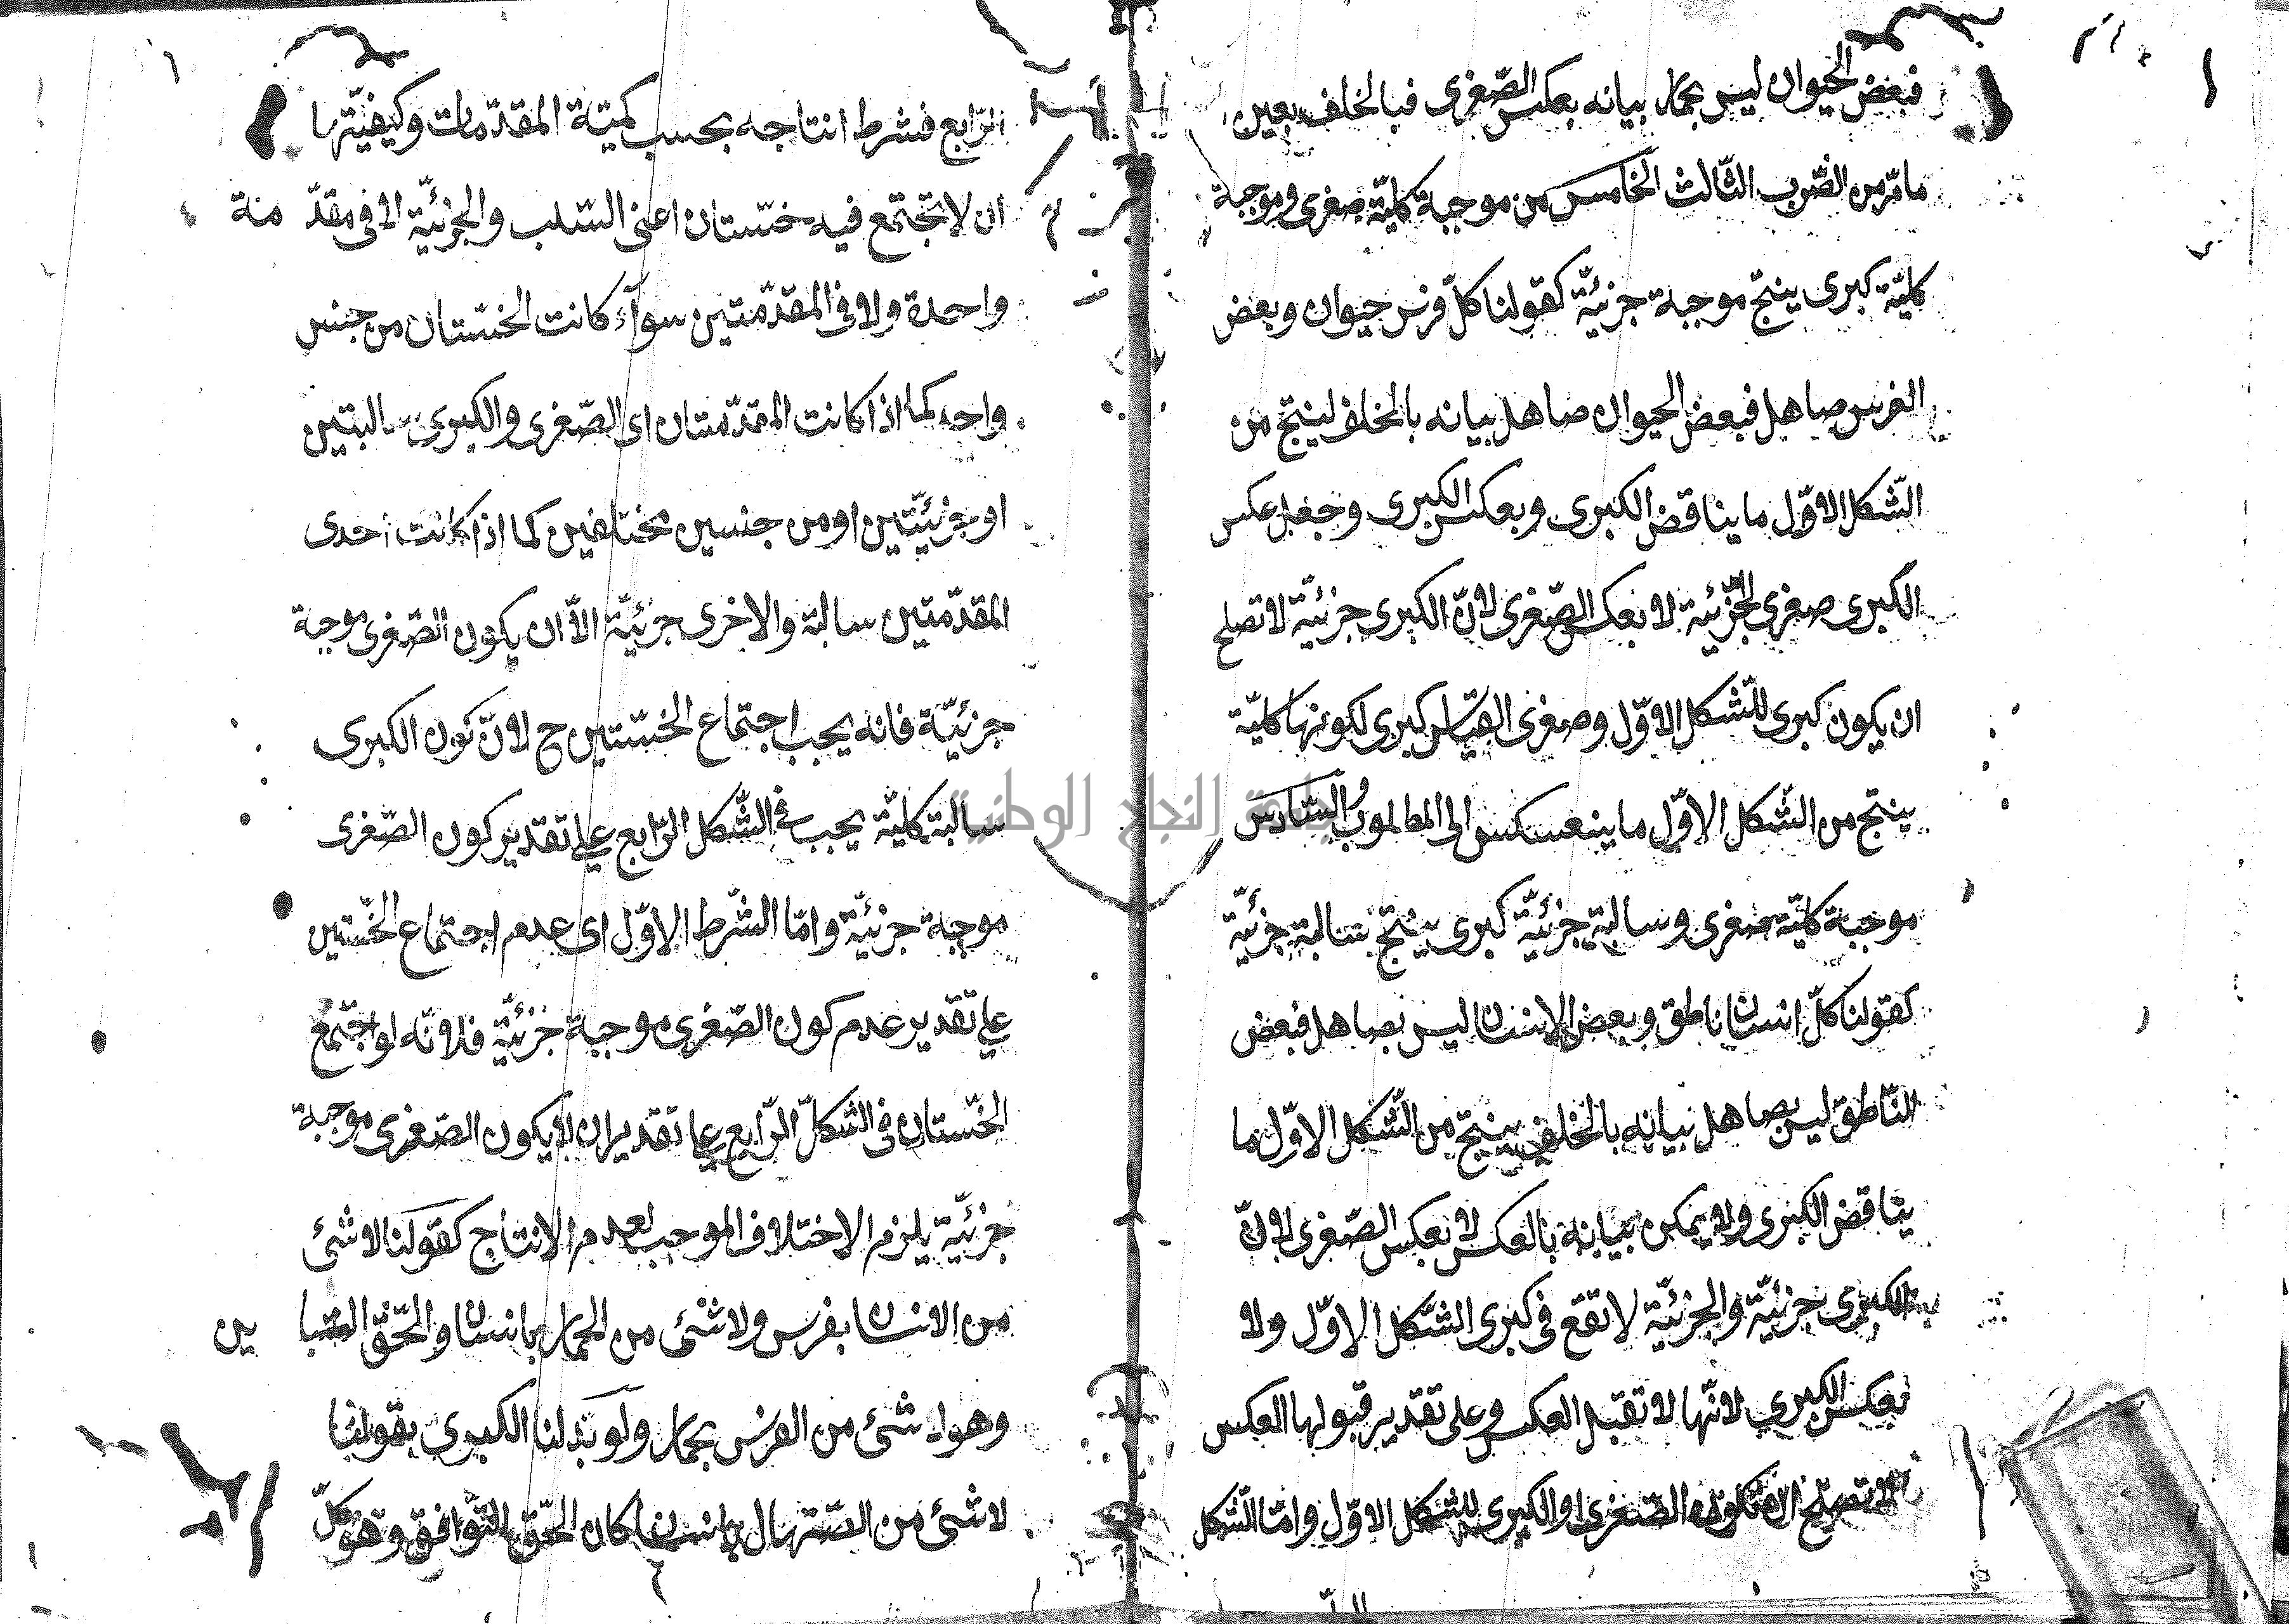 فبعض الحيوان ليس بحمار بيانه بعكس الصّغرى فبالخلف بعين
ما مرّ من الضّرب الثّالث الخامس من موجبة كليّة صغرى وموجبة
كليّة كبرى ينتج موجبة جزئيّة كقولنا كلّ فرس حيوان وبعض
الفرس صاهل فبعض الحيوان صاهل بيانه بالخلف لينتج من
الشّكل الاوّل ما يناقض الكبرى وبعكس الكبرى وجعل عكس
الكبرى صغرى لجزئيّة لا بعكس الصّغرى لانّ الكبرى جزئيّة لا تصلح
ان يكون كبرى للشّكل الاوّل وصغرى القياس كبرى لكونها كليّة
ينتج من الشّكل الاوّل ما ينعسكس الى المطلوب والسّادس
موجبة كليّة صغرى وسالبة جزئيّة كبرى ينتج سالبة جزئيّة
كقولنا كلّ انسان ناطق وبعض الانسان ليس بصاهل فبعض
النّاطق ليس بصاهل بيانه بالخلف ينتج من الشّكل الاوّل ما
يناقض الكبرى ولا يمكن بيانه بالعكس لا بعكس الصّغرى لانّ
الكبرى جزئيّة والجزئيّة لا تقع فى كبرى الشّكل الاوّل ولا
بعكس الكبرى لانّها لا تقبل العكس وعلى تقدير قبولها العكس
لا تصلح ان تكون الصّغرى والكبرى للشّكل الاوّل وامّا الشّكل
الرّابع فشرط انتاجه بحسب كميّة المقدّمات وكيفيّتها
ان لا تجتمع فيه خسّتان اعنى السّلب والجزئيّة لا فى مقدّ مة
واحدة ولا فى المقدّمتين سوآء كانت الخسّتان من جنس
واحد كما اذا كانت المقدّمتان اى الصّغرى والكبرى سالبتين
او جزئيّتين او من جنسين مختلفين كما اذا كانت احدى
المقدّمتين سالبة والاخرى جزئيّة الّا ان يكون الصّغرى موجبة
جزئيّة فانه يجب اجتماع الخسّتين ح لانّ كون الكبرى
سالبة كليّة يجب فى الشّكل الرّابع على تقدير كون الصّغرى
موجبة جزئيّة وامّا الشّرط الاوّل اى عدم اجتماع الخسّتين
على تقدير عدم كون الصّغرى موجبة جزئيّة فلانّه لو اجتمع
الخسّتان فى الشّكل الرّابع على تقدير ان لا يكون الصّغرى موجبة
جزئيّة يلزم الاختلاف الموجب لعدم الانتاج كقولنا لا شئ
من الانسان بفرس ولا شئ من الحمار بانسان والحقّ التّبا ين
وهو لا شئ من الفرس بحمار ولو بدلنا الكبرى بقولنا
لا شئ من الصّهال بانسان كان الحقّ التّوافق وهو كلّ
جامعة النجاح الوطنية